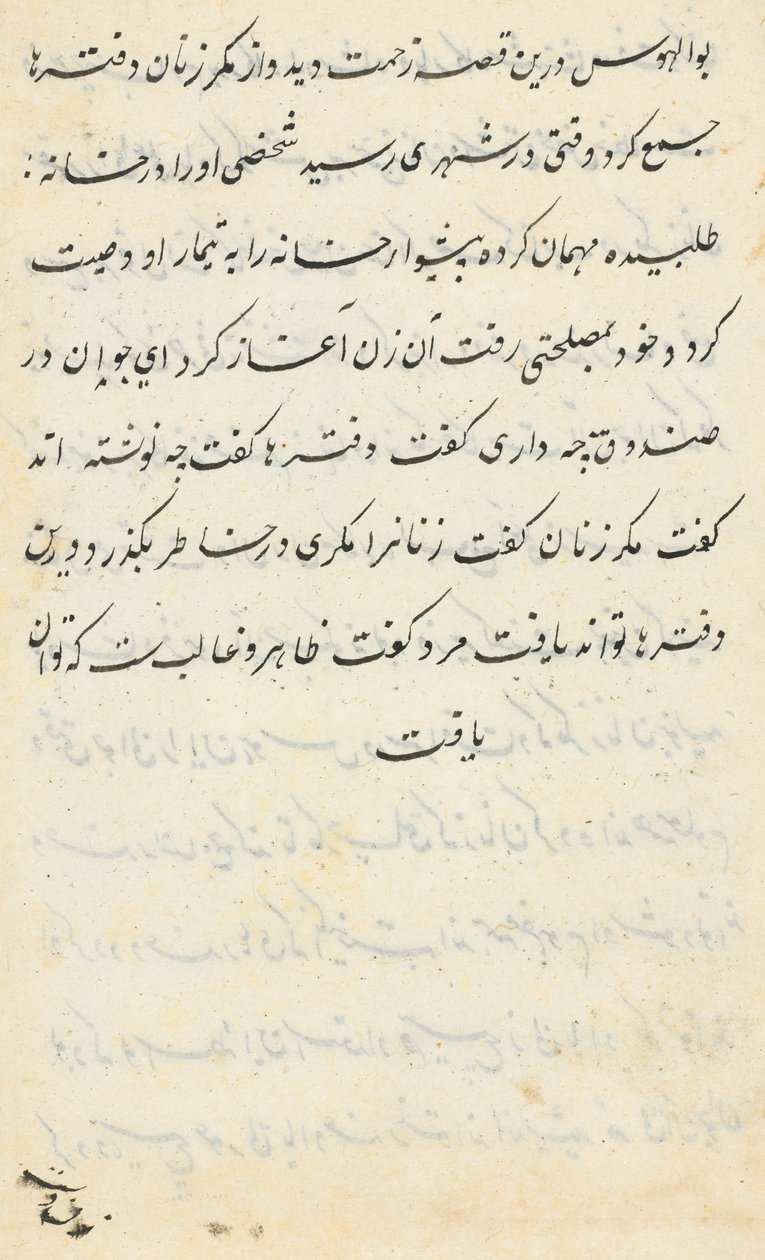 بوالهوس درین قصه زحمت دید و از مکر زنان دفترها
جمع کرد وقتی در شهری رسید شخصی او را در خانه :
طلبیده مهمان کرده پیشوار خانه را به تیمار او وصیت
کرد و خود بمصلحتی رفت آن زن آغاز کرد ای جوان در
صندوق چه داری کفت دفترها کفت چه نوشته اند
کفت مکر زنان کفت زنانرا مکری در خاطر بکذرد درین
دفترها تواند یافت مرد کفت ظاهر و غالب ست که توان
یافت